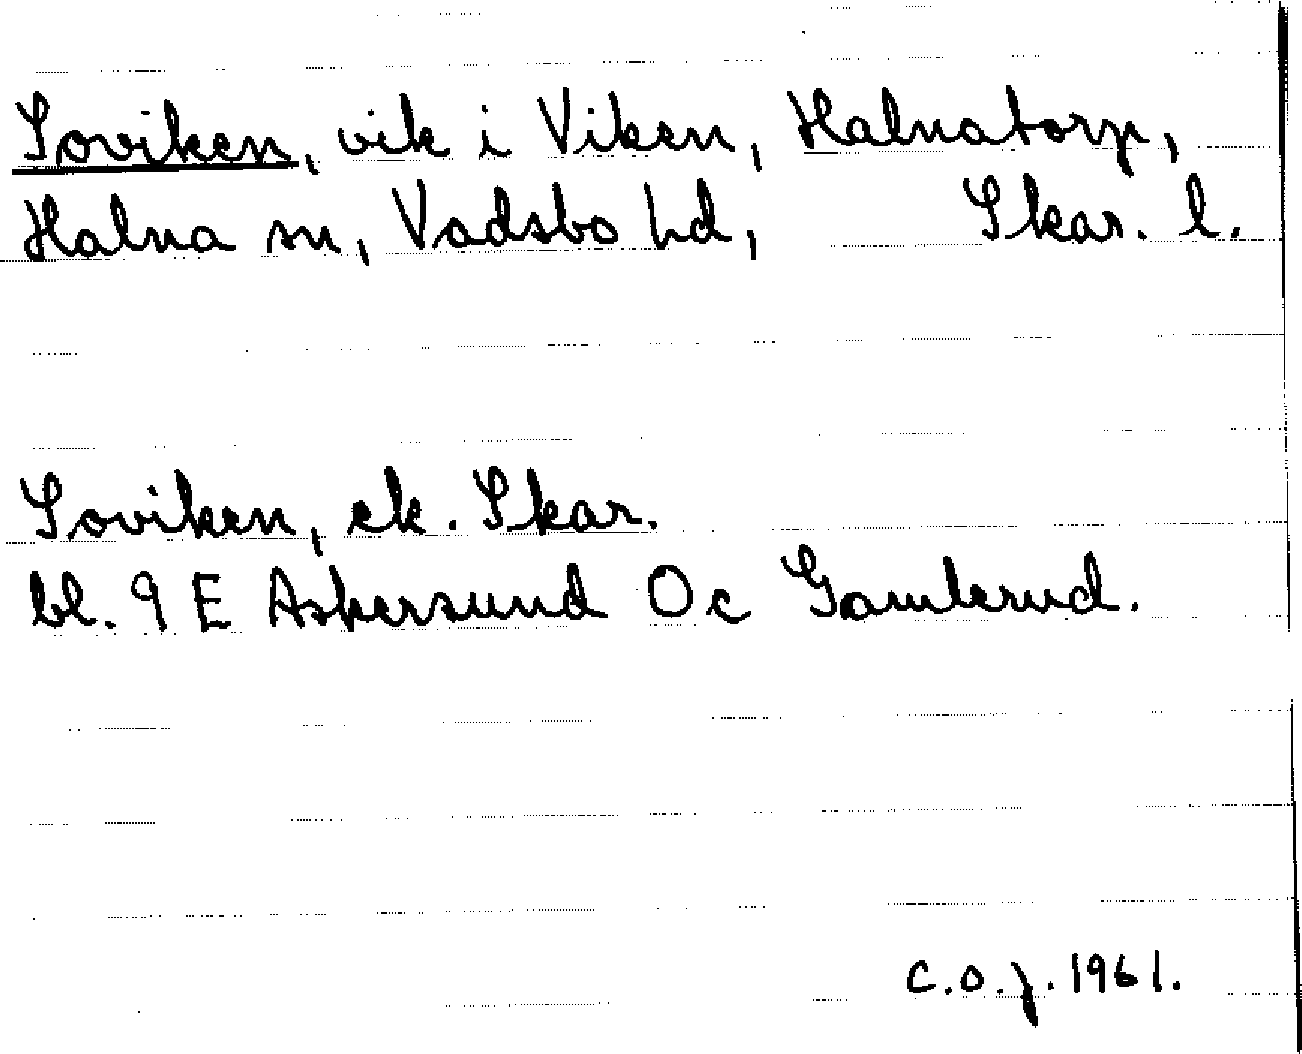 Soviken, vik i Viken, Halnatorp,
Halna sn, Vadsbo hd, Skar. l.
Soviken, ek. Skar.
bl. 9 E Askersund Oc Gamlerud.
C.O.J. 1961.